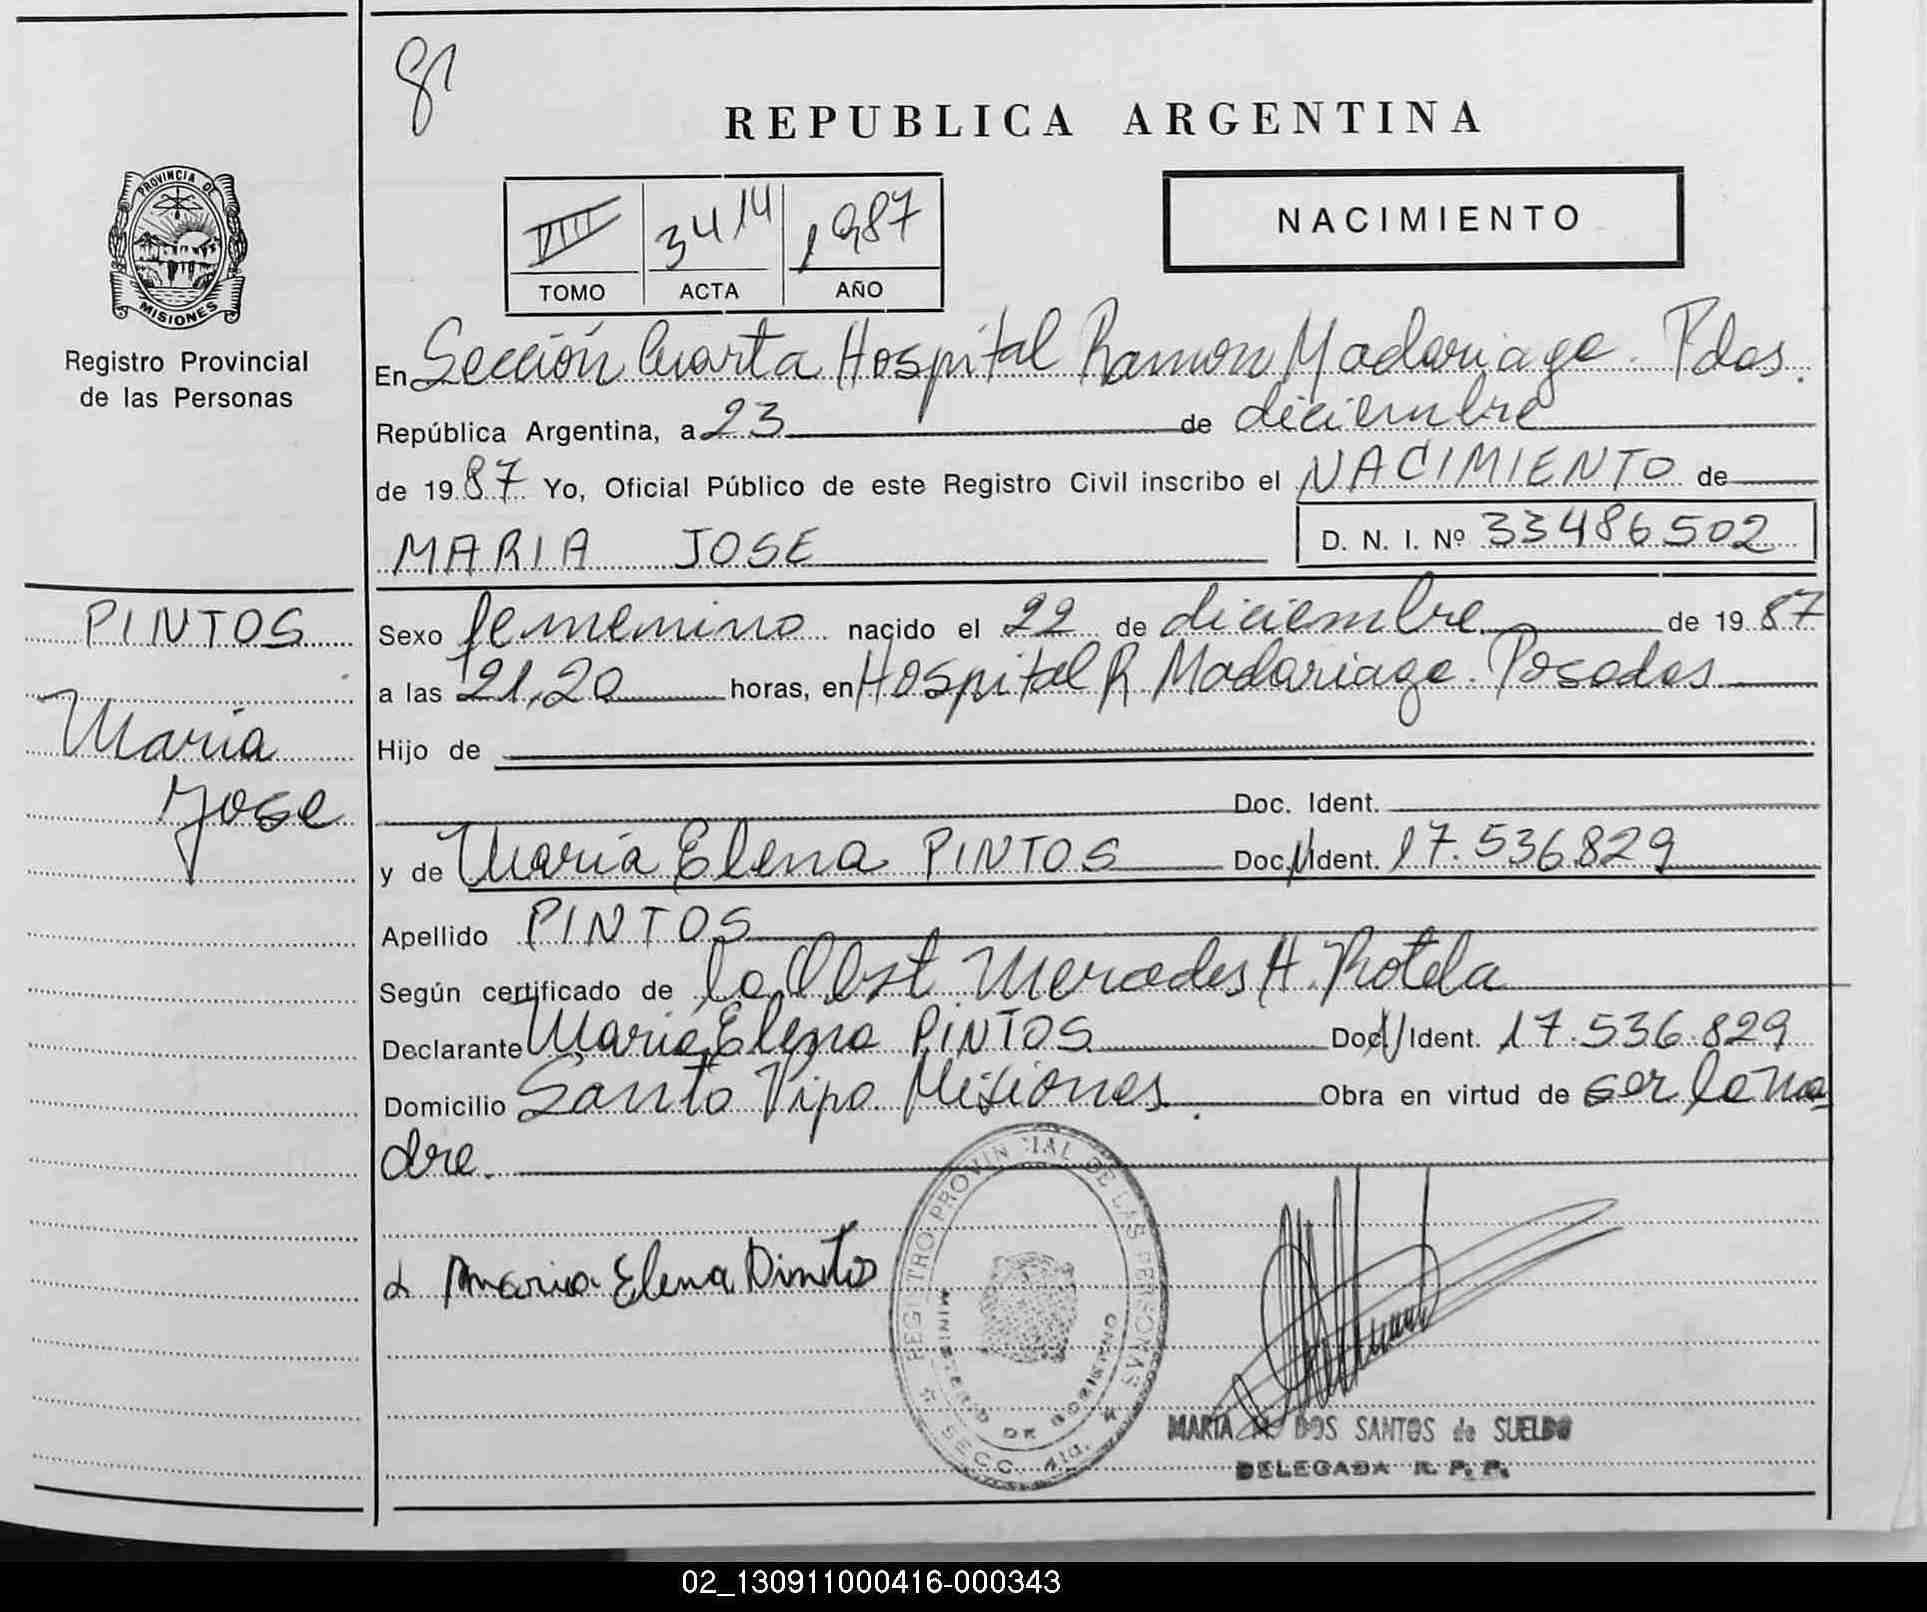 81
REPUBLICA ARGENTINA
PROVINCIA DE
MISIONES
Registro Provincial
de las Personas
VIII 3414 1987
TOMO ACTA AÑO
NACIMIENTO
En Sección Cuarta Hospital Ramon Madariaga. Pdas.
República Argentina, a 23 de diciembre
de 1987 Yo, Oficial Público de este Registro Civil inscribo el NACIMIENTO de
MARIA JOSE D. N. I. Nº 33486502
PINTOS
Maria
Jose
Sexo femenino nacido el 22 de diciembre de 1987
a las 21,20 horas, en Hospital R. Madariaga. Posadas
Hijo de
Doc. Ident.
y de Maria Elena PINTOS Doc. Ident. 17.536.829
Apellido PINTOS
Según certificado de la Obst. Mercedes H. Rotela
Declarante Maria Elena PINTOS Doc. Ident. 17.536.829
Domicilio Santo Pipo. Misiones. Obra en virtud de ser la ma-
dre.
Maria Elena Pintos
REGISTRO PROVINCIAL DE LAS PERSONAS
MINISTERIO DE GOBIERNO
SECC. 4ta.
MARIA DOS SANTOS de SUELDO
DELEGADA R. P. P.
02_130911000416-000343